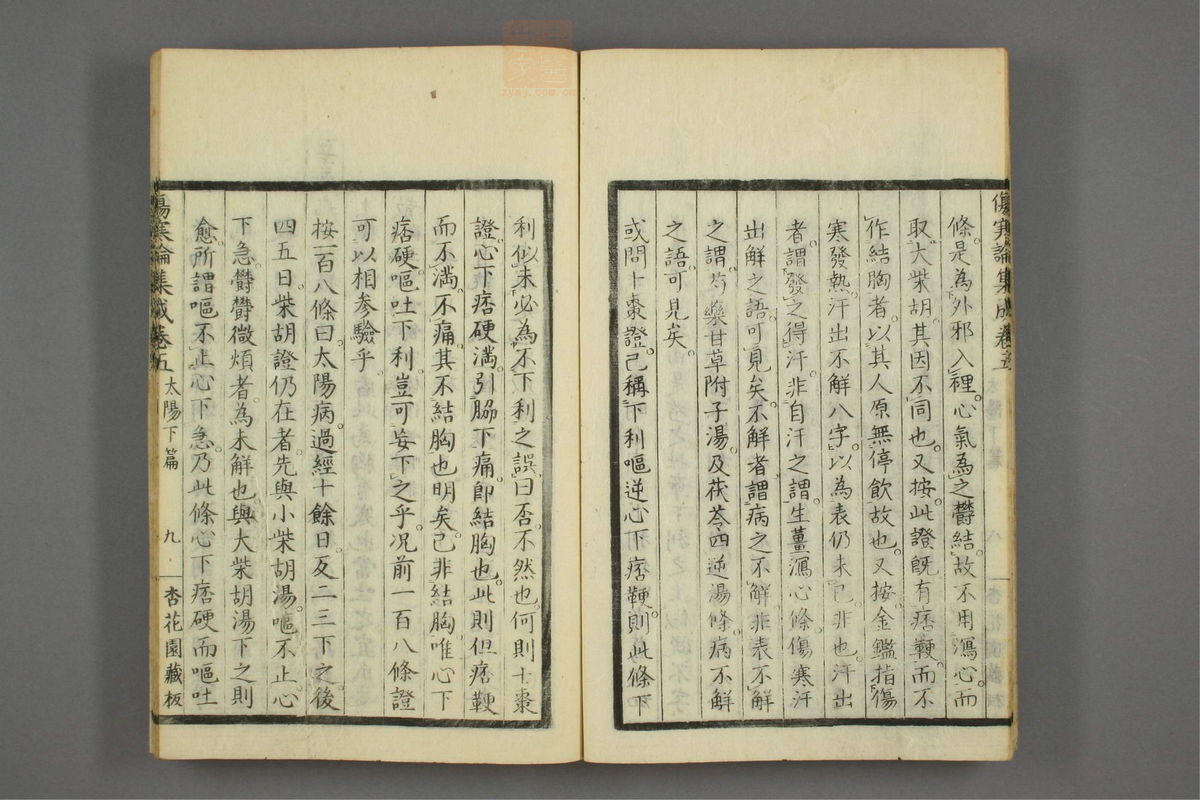 傷寒論集成卷五
條是為外邪入裡心氣為之鬱結故不用瀉心而
取大柴胡其因不同也又按此證旣有痞鞕而不
作結胸者以其人原無停飲故也又按金鑑指傷
寒發熱汗出不解八字以為表仍未已非也汗出
者謂發之得汗非自汗之謂生薑瀉心條傷寒汗
出解之語可見矣不解者謂病之不解非表不解
之謂芍藥甘草附子湯及茯苓四逆湯條病不解
之語可見矣
或問十棗證已稱下利嘔逆心下痞鞕則此條下
利似未必為不下利之誤曰否不然也何則十棗
證心下痞硬滿引脇下痛卽結胸也此則但痞鞕
而不滿不痛其不結胸也明矣已非結胸唯心下
痞硬嘔吐下利豈可妄下之乎况前一百八條證
可以相参驗乎
按一百八條曰太陽病過經十餘日反二三下之後
四五日柴胡證仍在者先與小柴胡湯嘔不止心
下急鬱鬱微煩者為未解也與大柴胡湯下之則
愈所謂嘔不止心下急乃此條心下痞硬而嘔吐
傷寒論集成卷五 太陽下篇 九 杏花園藏板
zyyj.com.cn